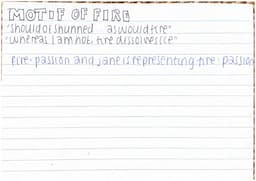 MOTIF OF FIRE
"should of shunned as would fire"
"whereas I am not, fire dissolves ice"
fire - passion and Jane is representing fire - passion